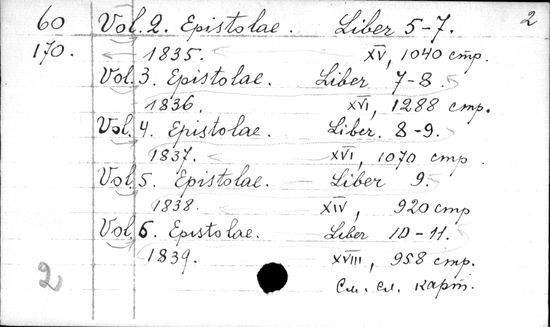 60 Vol. 2. Epistolae. Liber 5-7. 2
170. 1835. XV, 1040 стр.
Vol. 3. Epistolae. Liber 7-8.
1836. XVI, 1288 стр.
Vol. 4. Epistolae. Liber. 8-9.
1837. XVI, 1070 стр.
Vol. 5. Epistolae. Liber 9.
1838. XIV, 920 стр
Vol. 6. Epistolae. Liber 10-11.
1839. XVIII, 958 стр.
2 См. сл. карт.